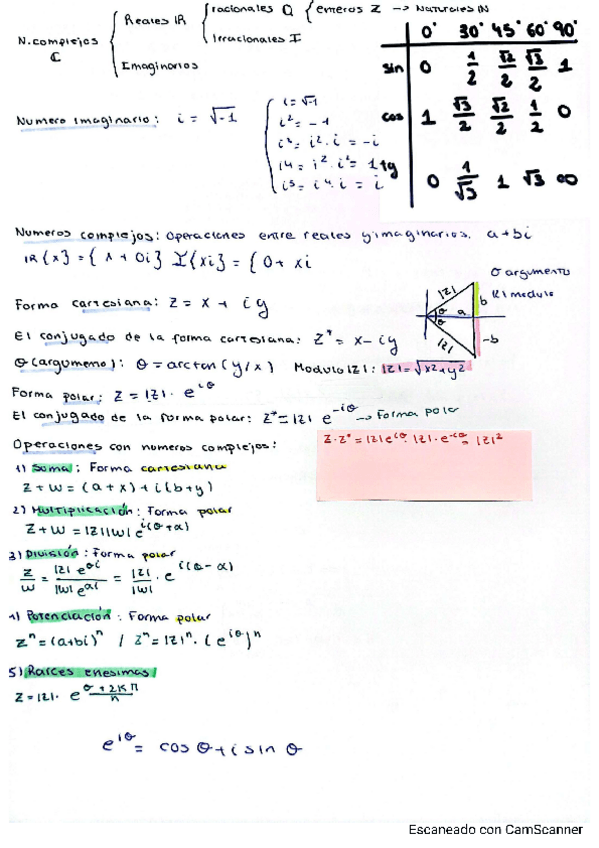 N. complejos ℂ { Reales IR { racionales Q { enteros Z → Naturales IN
Irracionales I
Imaginarios
0° 30° 45° 60° 90°
sin 0 1/2 √2/2 √3/2 1
cos 1 √3/2 √2/2 1/2 0
tg 0 1/√3 1 √3 ∞
Numero Imaginario: i = √-1
i = √-1
i² = -1
i³ = i² · i = -i
i4 = i² · i² = 1
i5 = i⁴ · i = i
Numeros complejos: Operaciones entre reales y imaginarios. a+bi
IR{x} = { x + 0i} I{xi} = {0 + xi
Forma cartesiana: Z = x + iy
|z| θ a b
θ |z| -b
σ argumento
|z| modulo
El conjugado de la forma cartesiana: Z* = x - iy
θ (argumeno): θ = arctan (y/x) Modulo |z| : |z| = √x²+y²
Forma polar: Z = |z| · e^iθ
El conjugado de la forma polar: Z* = |z| e^-iθ → Forma polar
Operaciones con numeros complejos:
Z·Z* = |z| e^iθ · |z| · e^-iθ = |z|²
1) Suma: Forma cartesiana
Z + W = (a + x) + i(b + y)
2) Multiplicación: Forma polar
Z + W = |z||w| e^i(θ+α)
3) División: Forma polar
Z/W = |z| e^θi / |w| e^αi = |z|/|w| · e^i(θ-α)
4) Potenciación: Forma polar
Z^n = (a+bi)^n / Z^n = |z|^n · (e^iθ)^n
5) Raíces enesimas
Z = |z| · e^σ+2kπ/n
e^iθ = cos θ + i sin θ
Escaneado con CamScanner